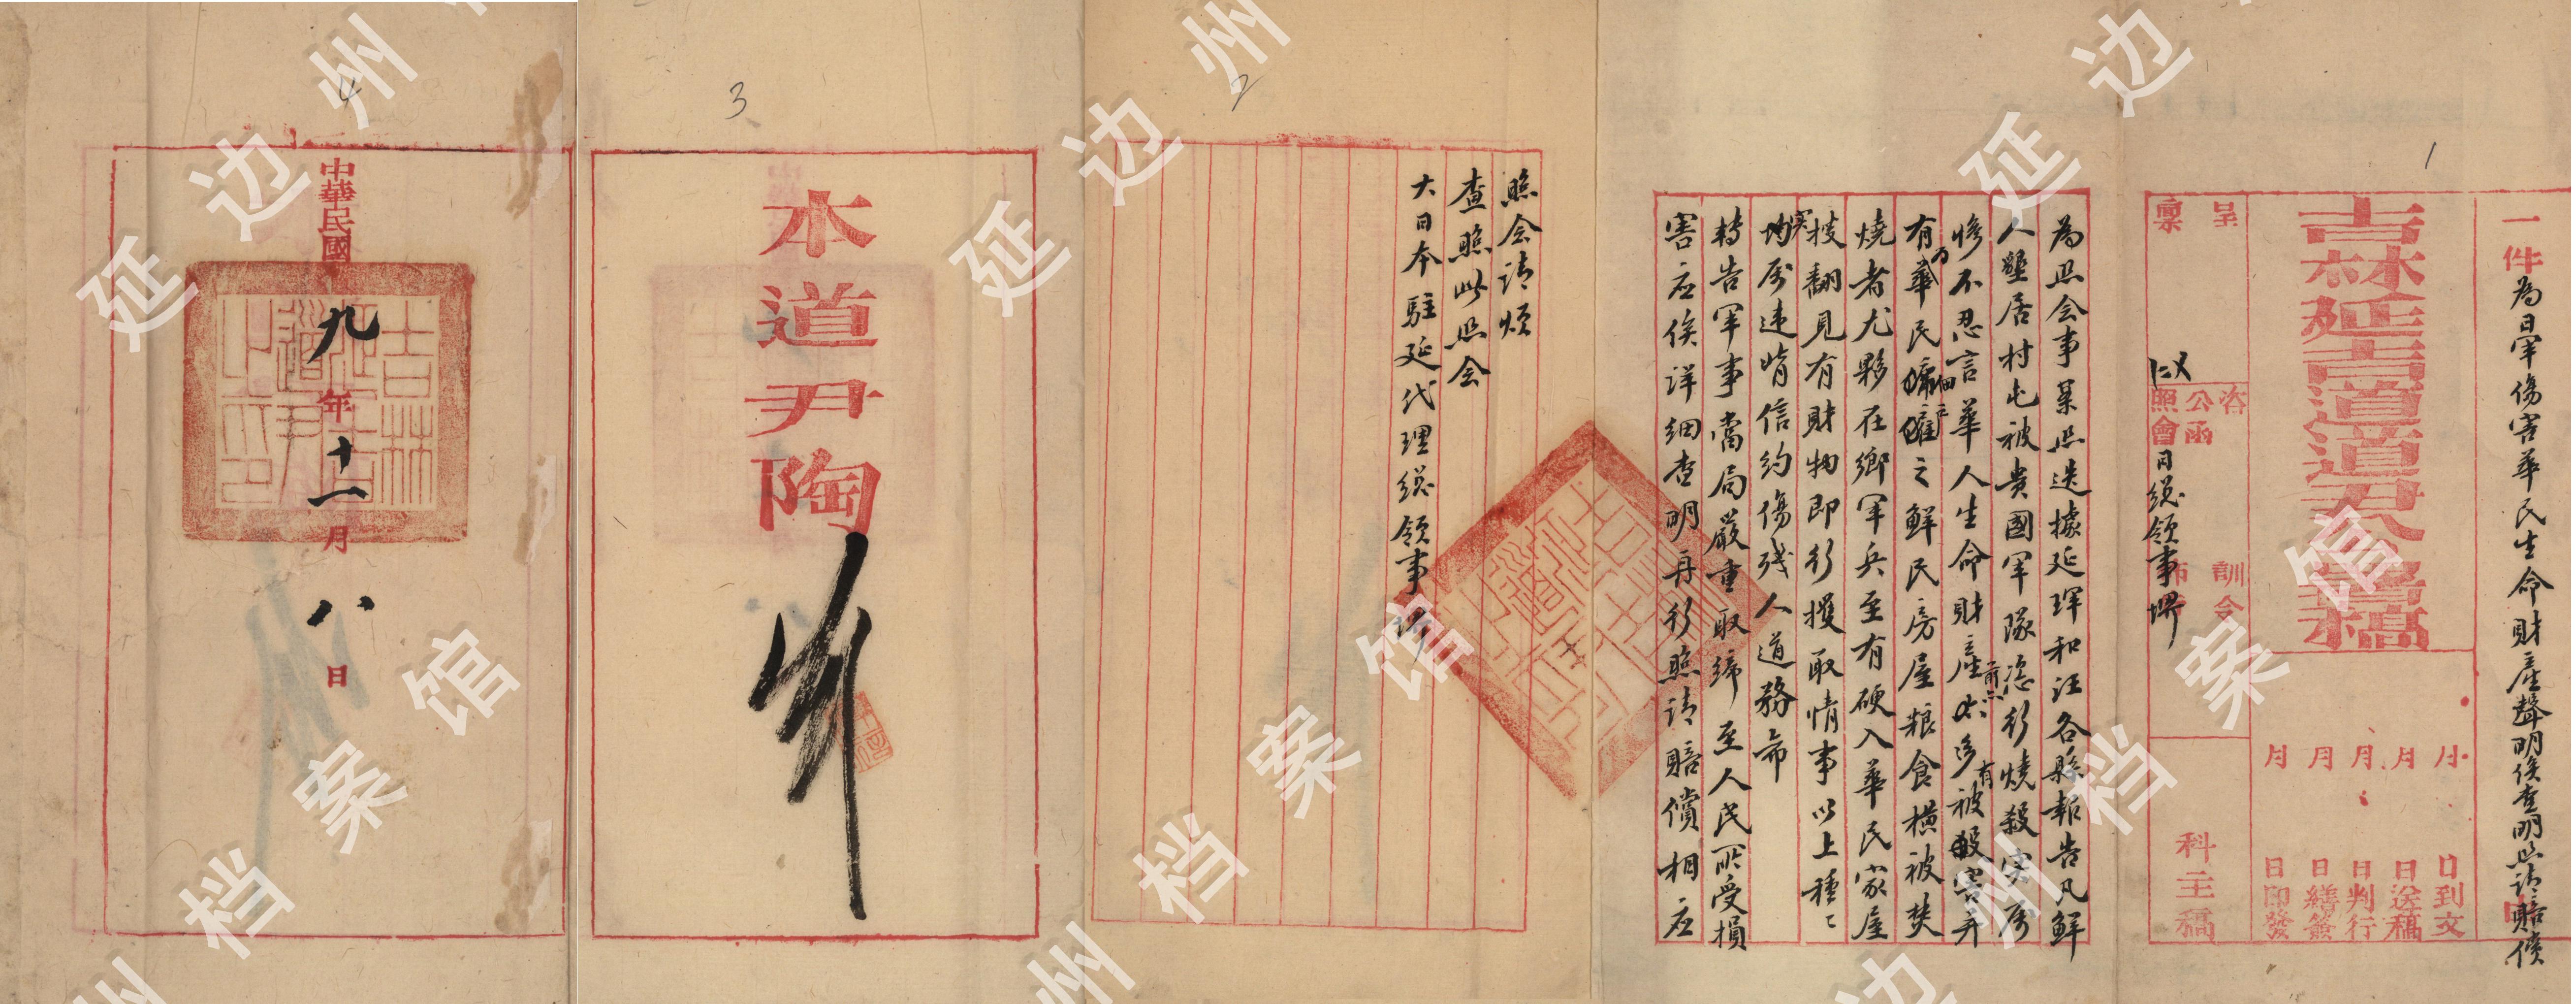 1
一件為日軍傷害華民生命財產聲明俟查明照請賠償
吉林延吉道道尹公署稿
月 日到文
月 日送稿
月 日判行
月 日繕簽
月 日印發
呈
稟
咨
公函
照會日総領事堺
訓令
科主稿
為照会事案照迭據延琿和汪各縣報告凡鮮
人墾居村屯被貴國軍隊恣行燒殺实属
惨不忍言華人生命財產前亦多有被害并
有為華民佃户之鮮民房屋粮食横被焚
燒者尤夥在鄉軍兵至有硬入華民家屋
搜翻見有財物即行攫取情事以上種々
实属違背信約傷残人道務希
轉告軍事當局嚴重取缔至人民所受損
害应俟詳細查明再行照請賠償相应
2
照会請煩
查照此照会
大日本駐延代理総領事堺
3
本道尹陶
4
中華民國九年十一月八日
吉林延吉道道尹之印
延边州档案馆
延边州档案馆
延边州档案馆